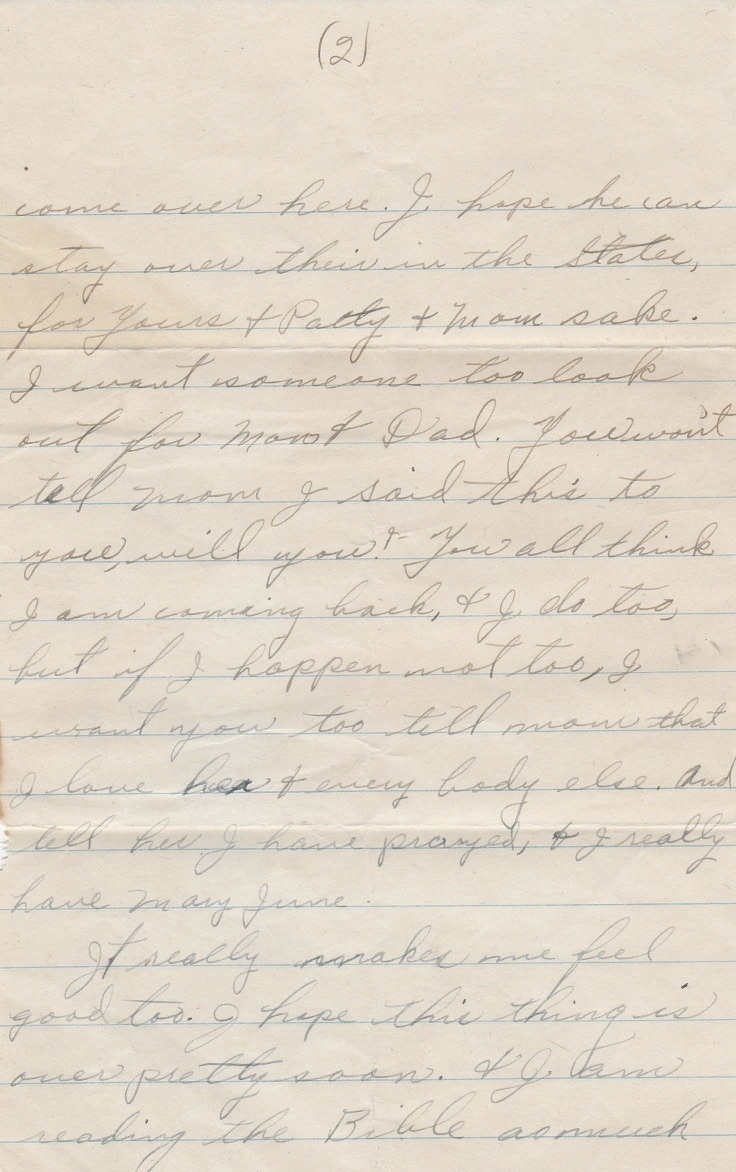 (2)
come over here. I hope he can
stay over their in the States,
for Yours & Patty & Mom sake.
I want someone too look
out for Mom & Dad. You won't
tell mom I said this to
you, will you? You all think
I am coming back, & I do too,
but if I happen not too, I
want you too till mom that
I love her & every body else. And
tell her I have prayed, & I really
have Mary June.
It really makes me feel
good too. I hope this thing is
over pretty soon. & I am
reading the Bible as much